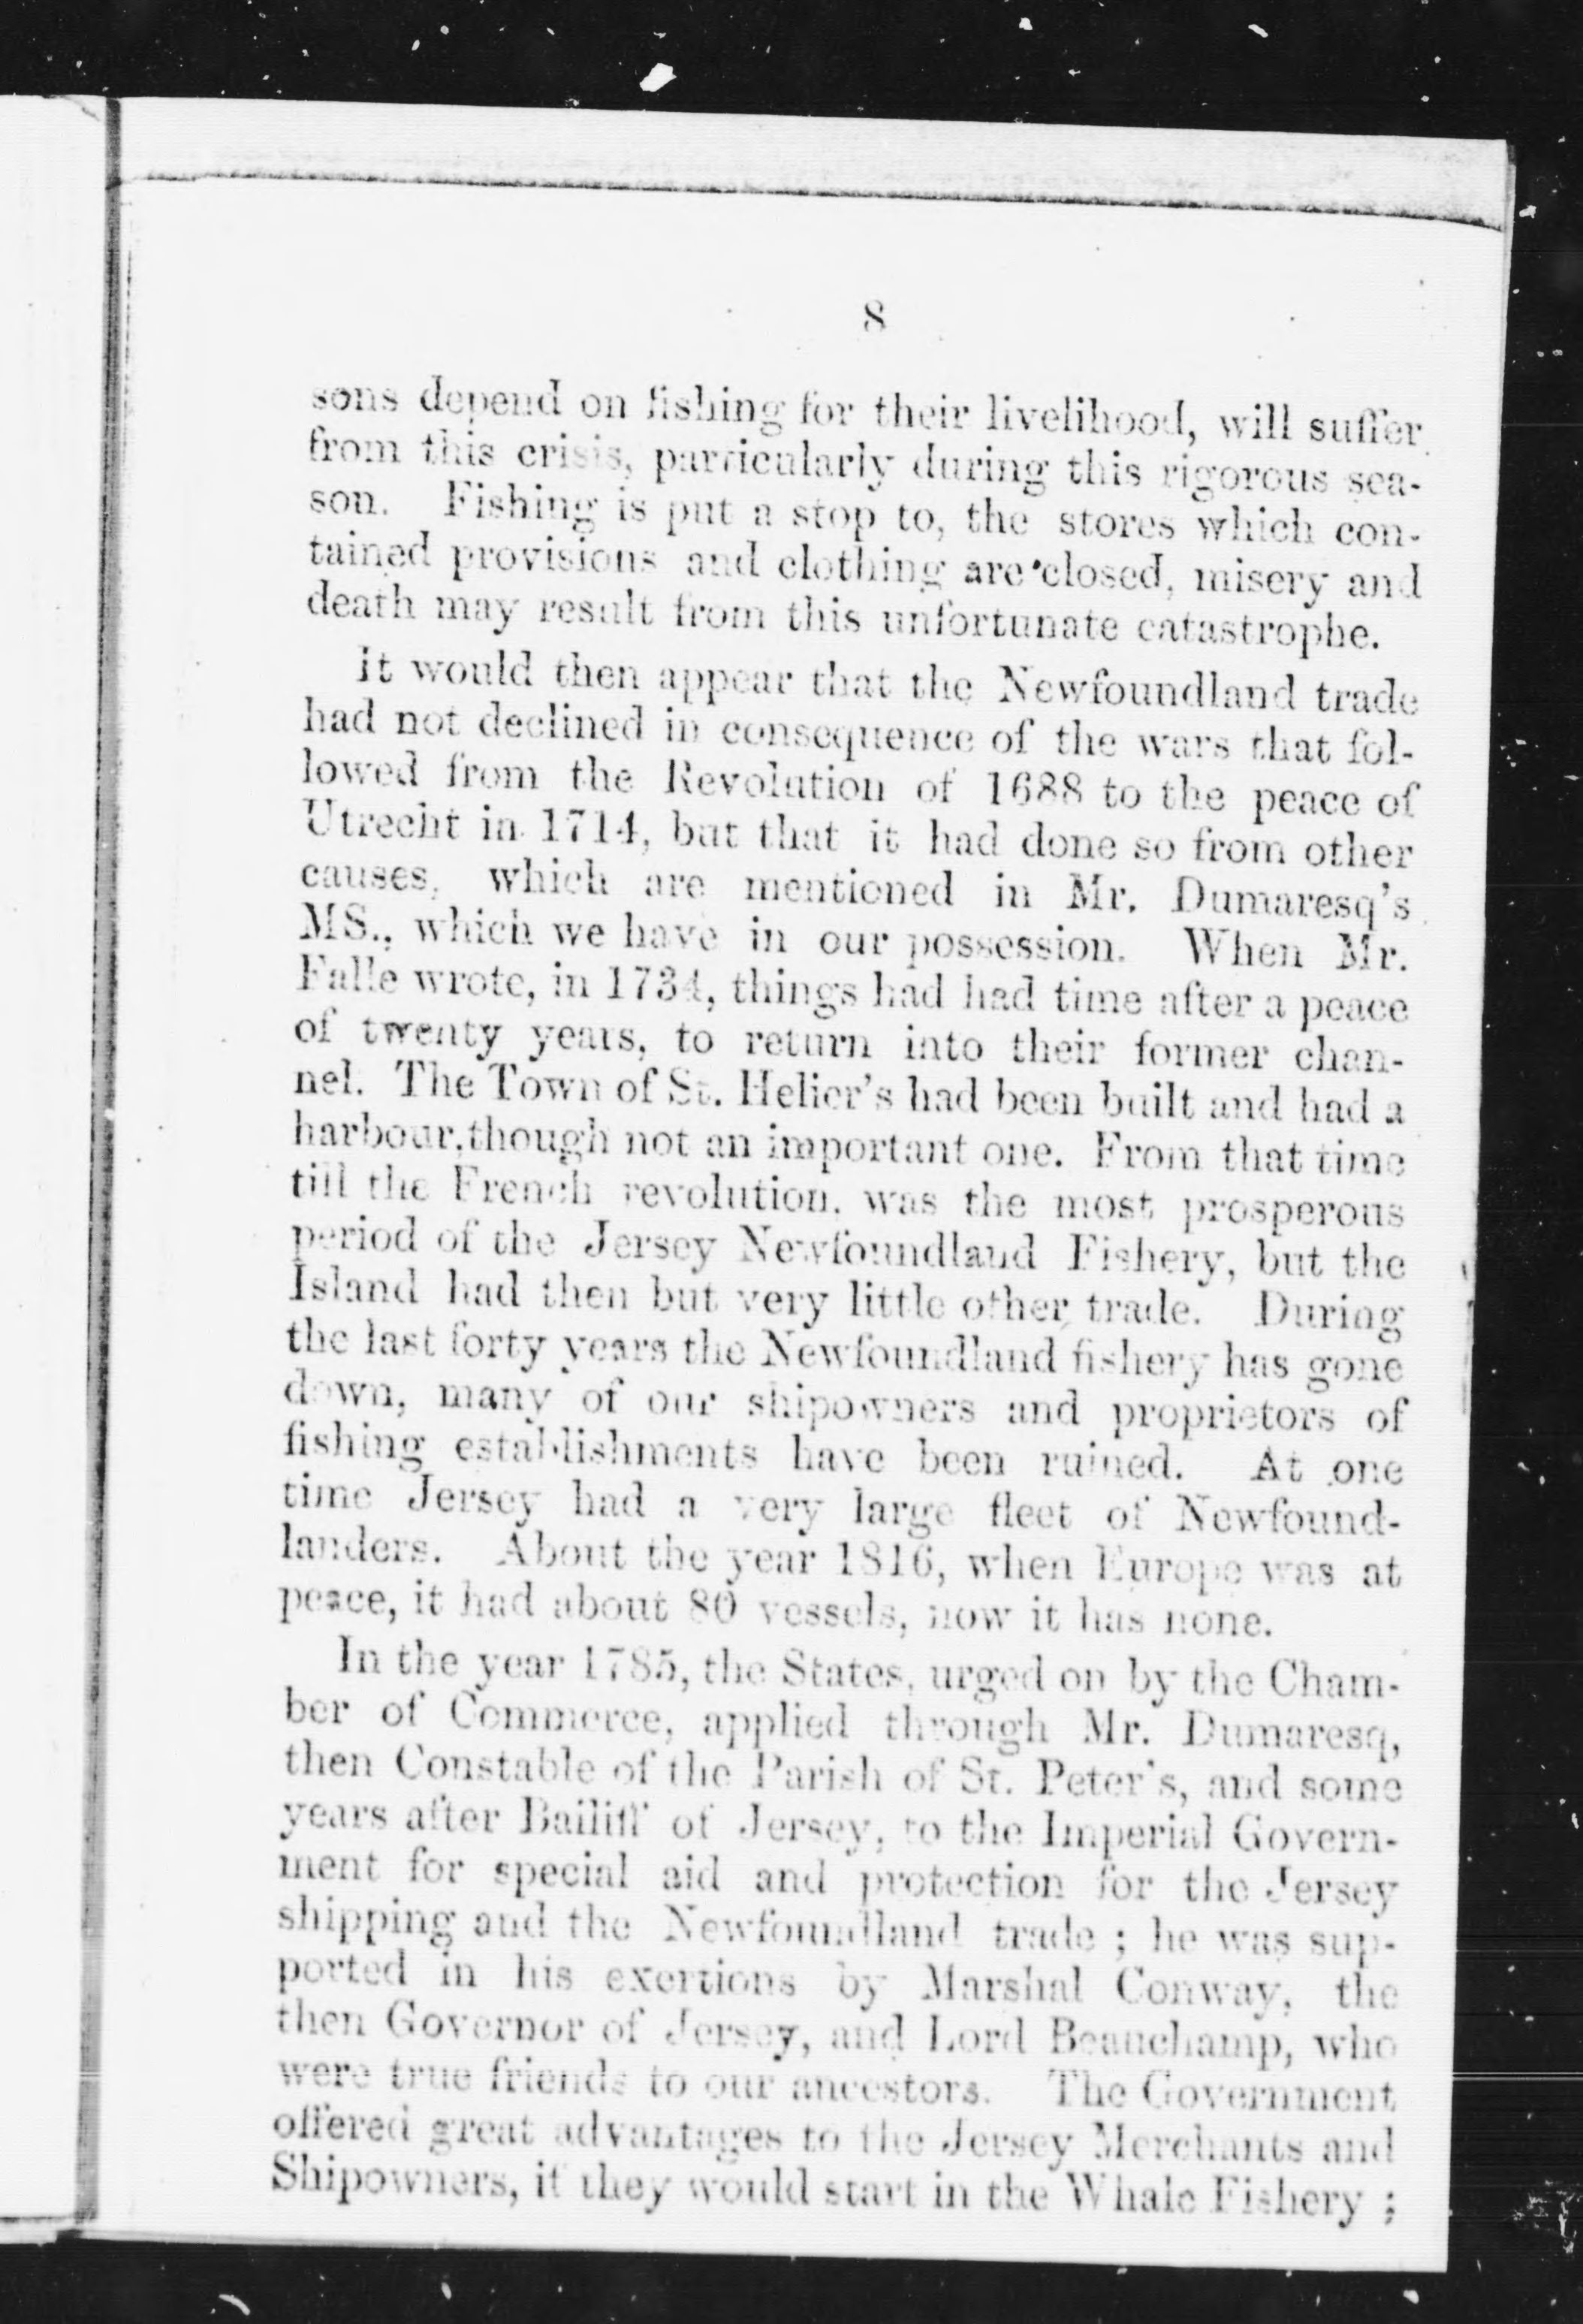 8
sons depend on fishing for their livelihood, will suffer
from this crisis, particularly during this rigorous sea-
son. Fishing is put a stop to, the stores which con-
tained provisions and clothing are closed, misery and
death may result from this unfortunate catastrophe.
It would then appear that the Newfoundland trade
had not declined in consequence of the wars that fol-
lowed from the Revolution of 1688 to the peace of
Utrecht in 1714, but that it had done so from other
causes, which are mentioned in Mr. Dumaresq's
MS., which we have in our possession. When Mr.
Falle wrote, in 1734, things had had time after a peace
of twenty years, to return into their former chan-
nel. The Town of St. Helier's had been built and had a
harbour, though not an important one. From that time
till the French revolution, was the most prosperous
period of the Jersey Newfoundland Fishery, but the
Island had then but very little other trade. During
the last forty years the Newfoundland fishery has gone
down, many of our shipowners and proprietors of
fishing establishments have been ruined. At one
time Jersey had a very large fleet of Newfound-
landers. About the year 1816, when Europe was at
peace, it had about 80 vessels, now it has none.
In the year 1785, the States, urged on by the Cham-
ber of Commerce, applied through Mr. Dumaresq,
then Constable of the Parish of St. Peter's, and some
years after Bailiff of Jersey, to the Imperial Govern-
ment for special aid and protection for the Jersey
shipping and the Newfoundland trade ; he was sup-
ported in his exertions by Marshal Conway, the
then Governor of Jersey, and Lord Beauchamp, who
were true friends to our ancestors. The Government
offered great advantages to the Jersey Merchants and
Shipowners, if they would start in the Whale Fishery ;